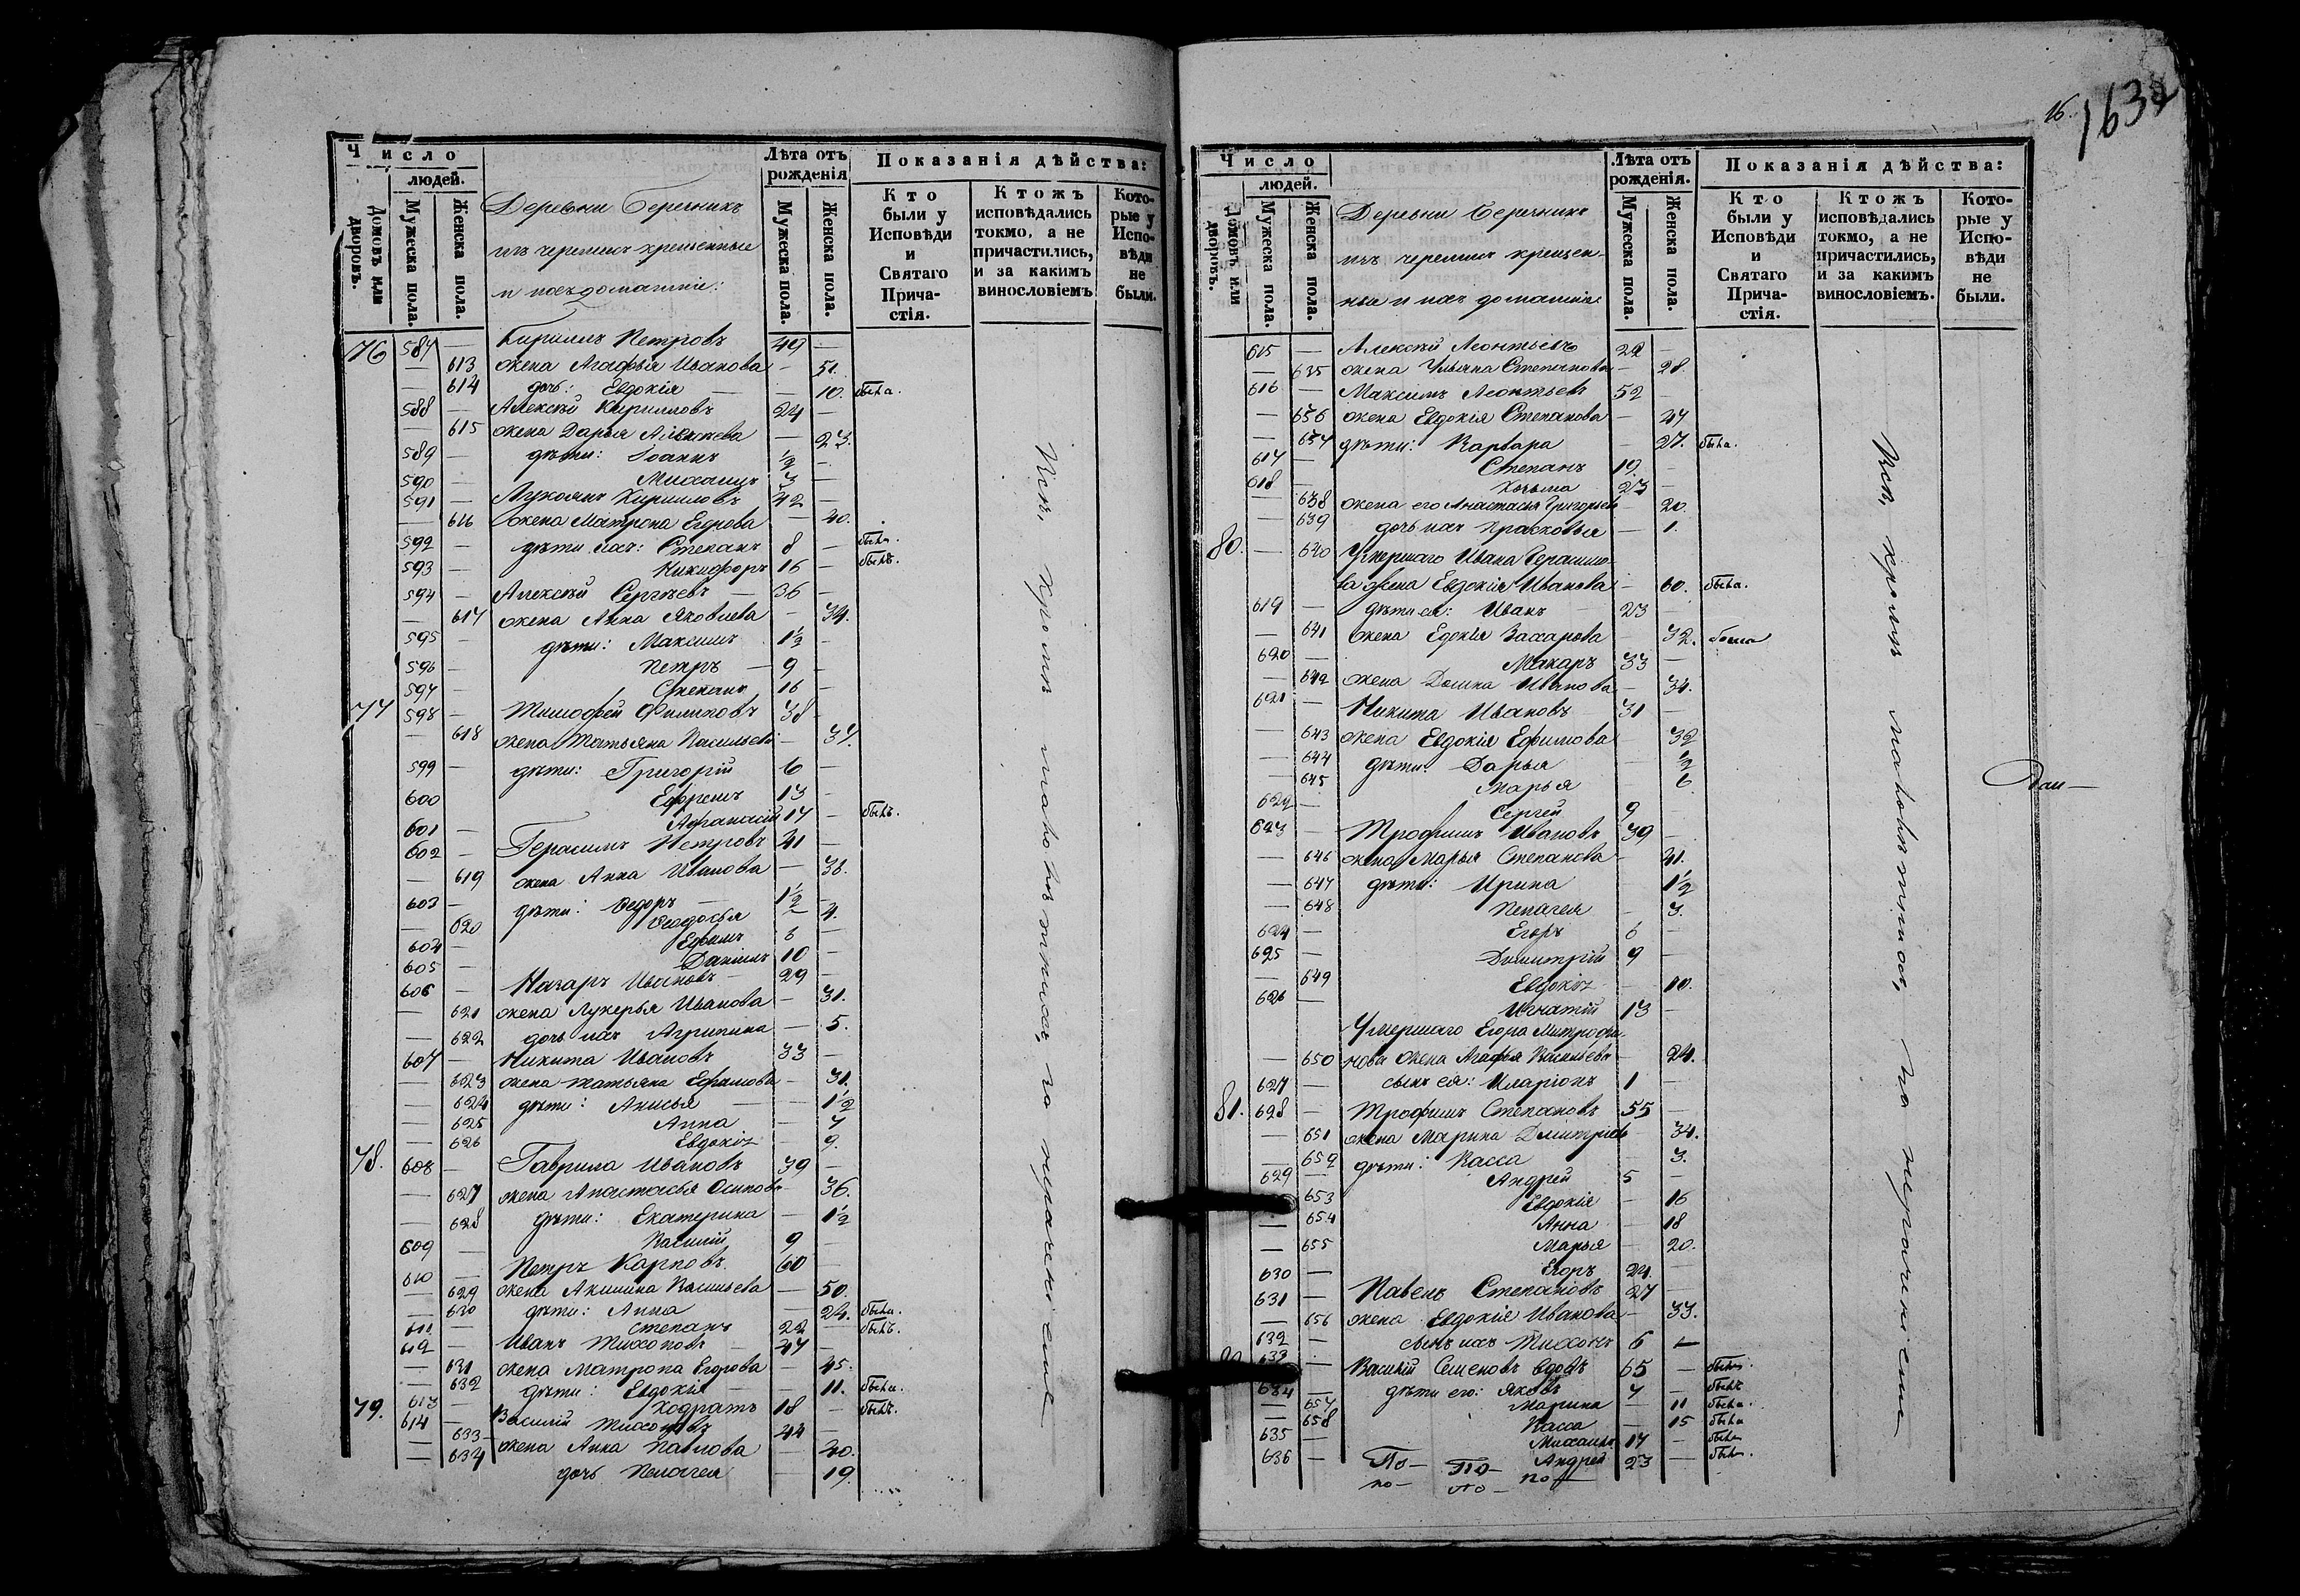 Число
людей.
Домовъ или дворовъ.
Мужеска пола.
Женска пола.
Деревни Беречникъ
изъ черемисъ крещенные
и ихъ домашніе:
Лѣта отъ рожденія
Мужеска пола.
Женска пола.
Показанія дѣйства:
Кто были у Исповѣди и Святаго Причастія.
Ктожъ исповѣдались токмо, а не причастились, и за какимъ винословіемъ
Которые у Исповѣди не были.
76 587 — Кириллъ Петровъ 49 —
— 613 жена Агафья Иванова — 51.
— 614 дочь: Евдокія — 10. была.
588 — Алексѣй Кирилловъ 24 —
— 615 жена Дарья — 23.
589 — дѣти: Іоаннъ ½ —
590 — Михаилъ 3 —
591 — Лукоянъ Кирилловъ 42 —
— 616 жена Матрона Егорова — 40.
592 — дѣти ихъ: Степанъ 8 — былъ.
593 — Никифоръ 16 — былъ.
594 — Алексѣй Сергѣевъ 36 —
— 617 жена Анна Яковлева — 34.
595 — дѣти: Максимъ 1½ —
596 — Петръ 9 —
597 — Степанъ 16 —
77 598 — Тимофей Филиповъ 38 —
— 618 жена Татьяна Васильева — 37.
599 — дѣти: Григорій 6 —
600 Ефремъ 13 —
601 — Афанасій 17 — былъ.
602 — Герасимъ Петровъ 41 —
— 619 жена Анна Иванова — 38.
603 — дѣти: Ѳедоръ 1½ —
— 620 Ѳеодосья 4.
604 — Ефимъ 6 —
605 — Даніилъ 10 —
606 — Назаръ Ивановъ 29 —
— 621 жена Лукерья Иванова — 31.
— 622 дочь ихъ Агрипина — 5.
607 — Никита Ивановъ 33 —
— 623 жена Татьяна Ефимова — 31.
— 624 дѣти: Анисья — 1½
— 625 Анна — 7
— 626 Евдокія — 9.
78. 608 — Гаврила Ивановъ 39 —
— 627 жена Анастасья Осипова — 36.
— 628 дѣти: Екатерина — 1½
609 — Василій 9 —
610 — Петръ Карповъ 60 —
— 629 жена Акилина Васильева — 50.
— 630 дѣти: Анна — 24. была.
611 — Степанъ 22 — былъ.
612 — Иванъ Тихоновъ 47 —
— 631 жена Матрона Егорова — 45.
— 632 дѣти: Евдокія — 11. была.
613 — Кодратъ 18 — былъ.
79. 614 — Василій Тихоновъ 44 —
— 633 жена Анна Павлова — 40.
— 634 дочь Пелагея — 19.
16. 1632
Число
людей.
Домовъ или дворовъ.
Мужеска пола.
Женска пола.
Деревни Беречникъ
изъ черемисъ крещен-
ные и ихъ домашніе
Лѣта отъ рожденія.
Мужеска пола.
Женска пола.
Показанія дѣйства:
Кто были у Исповѣди и Святаго Причастія.
Ктожъ исповѣдались токмо, а не причастились, и за какимъ винословіемъ.
Которые у Исповѣди не были.
615 — Алексѣй Леонтьевъ 29 —
— 635 жена Ульяна Степанова — 28.
616 — Максимъ Леонтьевъ 52 —
— 636 жена Евдокія Степанова — 47
— 637 дѣти: Варвара — 27. была.
617 — Степанъ 19. —
618 — Козьма 23 —
— 638 жена его Анастасья Григорьева — 20.
— 639 дочь ихъ Прасковья — 1.
80. — 640 Умершаго Ивана Герасимо-
ва жена Евдокія Иванова — 60. была.
619 — дѣти ея: Иванъ 23 —
— 641 жена Едокія Захарова 32. была
620 — Макаръ 33 —
— 642 жена Домна Иванова — 34.
621 — Никита Ивановъ 31 —
— 643 жена Евдокія Ефимова — 32
— 644 дѣти: Дарья — ½
— 645 Марья — 6
622 — Сергей 9 —
623 — Трофимъ Ивановъ 39 —
— 646 жена Марья Степанова — 41.
— 647 дѣти: Ирина 1½
— 648 Пелагея — 3.
624 — Егоръ 6 —
625 — Димитрій 9 —
— 649 Евдокія — 10.
626 — Игнатій 13 —
Умершаго Егора Митрофа-
— 650 нова жена Агафья Васильева — 24.
627 — сынъ ея: Иларіонъ 1 —
81. 628 — Трофимъ Степановъ 55 —
— 651 жена Марина Дмитріева 34.
— 652 дѣти: Васса — 3.
629 — Андрей 5 —
653 Евдокія — 16
— 654 Анна — 18
— 655 Марья — 20.
630 — Егоръ 24. —
631 — Павелъ Степановъ 27 —
— 656 жена Евдокія Иванова — 33.
632 — сынъ ихъ Тихонъ 6 —
633 — Василій Семеновъ вдовъ 65 — былъ.
634 — дѣти его: Яковъ 7 — былъ
— 657 Марина — 11 была.
— 658 Васса — 15 была
635 — Михаилъ 17 — былъ
636 — Андрей 23 — былъ.
По— По— по—
по— по—